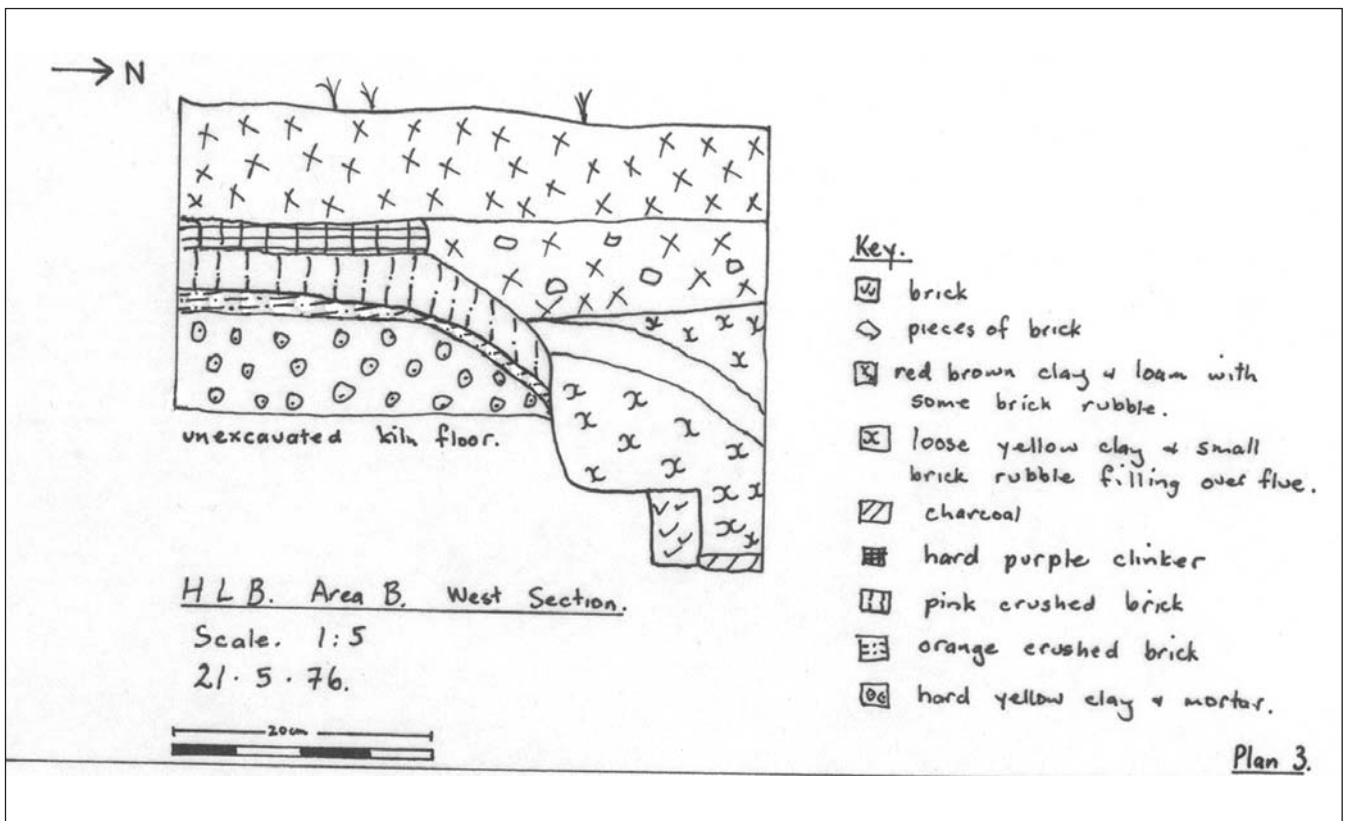 N
unexcavated kiln floor.
H L B. Area B. West Section.
Scale. 1:5
21. 5. 76.
20cm
Key.
brick
pieces of brick
red brown clay & loam with
some brick rubble.
loose yellow clay & small
brick rubble filling over flue.
charcoal
hard purple clinker
pink crushed brick
orange crushed brick
hard yellow clay & mortar.
Plan 3.